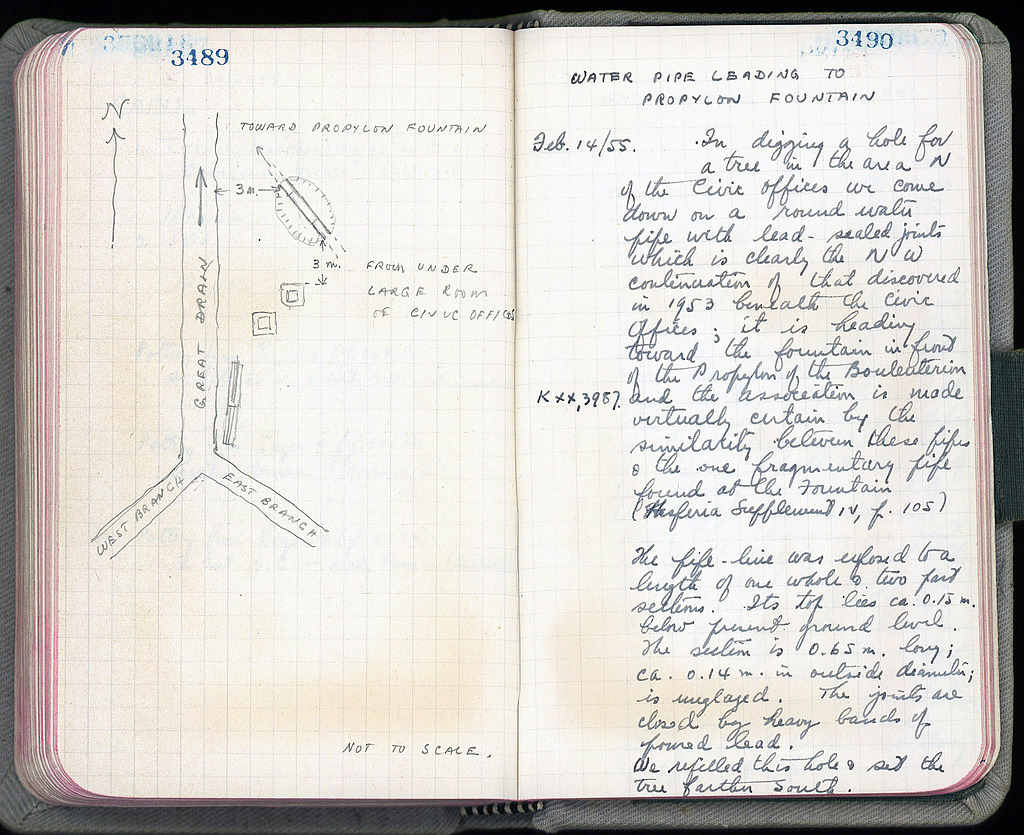 3489
N
TOWARD PROPYLON FOUNTAIN
3 m.
3 m.
FROM UNDER
LARGE ROOM
OF CIVIC OFFICES
GREAT DRAIN
WEST BRANCH
EAST BRANCH
NOT TO SCALE.
3490
WATER PIPE LEADING TO
PROPYLON FOUNTAIN
Feb. 14/55. In digging a hole for
a tree in the area N
of the Civic Offices we come
down on a round water
pipe with lead-sealed joints
which is clearly the N W
continuation of that discovered
in 1953 beneath the Civic
Offices; it is heading
toward the fountain in front
of the Propylon of the Bouleuterion
K XX, 3987. and the association is made
virtually certain by the
similarity between these pipes
& the one fragmentary pipe
found at the Fountain
(Hesperia Supplement IV, p. 105)
The pipe-line was exposed to a
length of one whole & two part
sections. Its top lies ca. 0.15 m.
below present ground level.
The section is 0.65 m. long;
ca. 0.14 m. in outside diameter;
is unglazed. The joints are
closed by heavy bands of
poured lead.
We refilled this hole & set the
tree farther South.